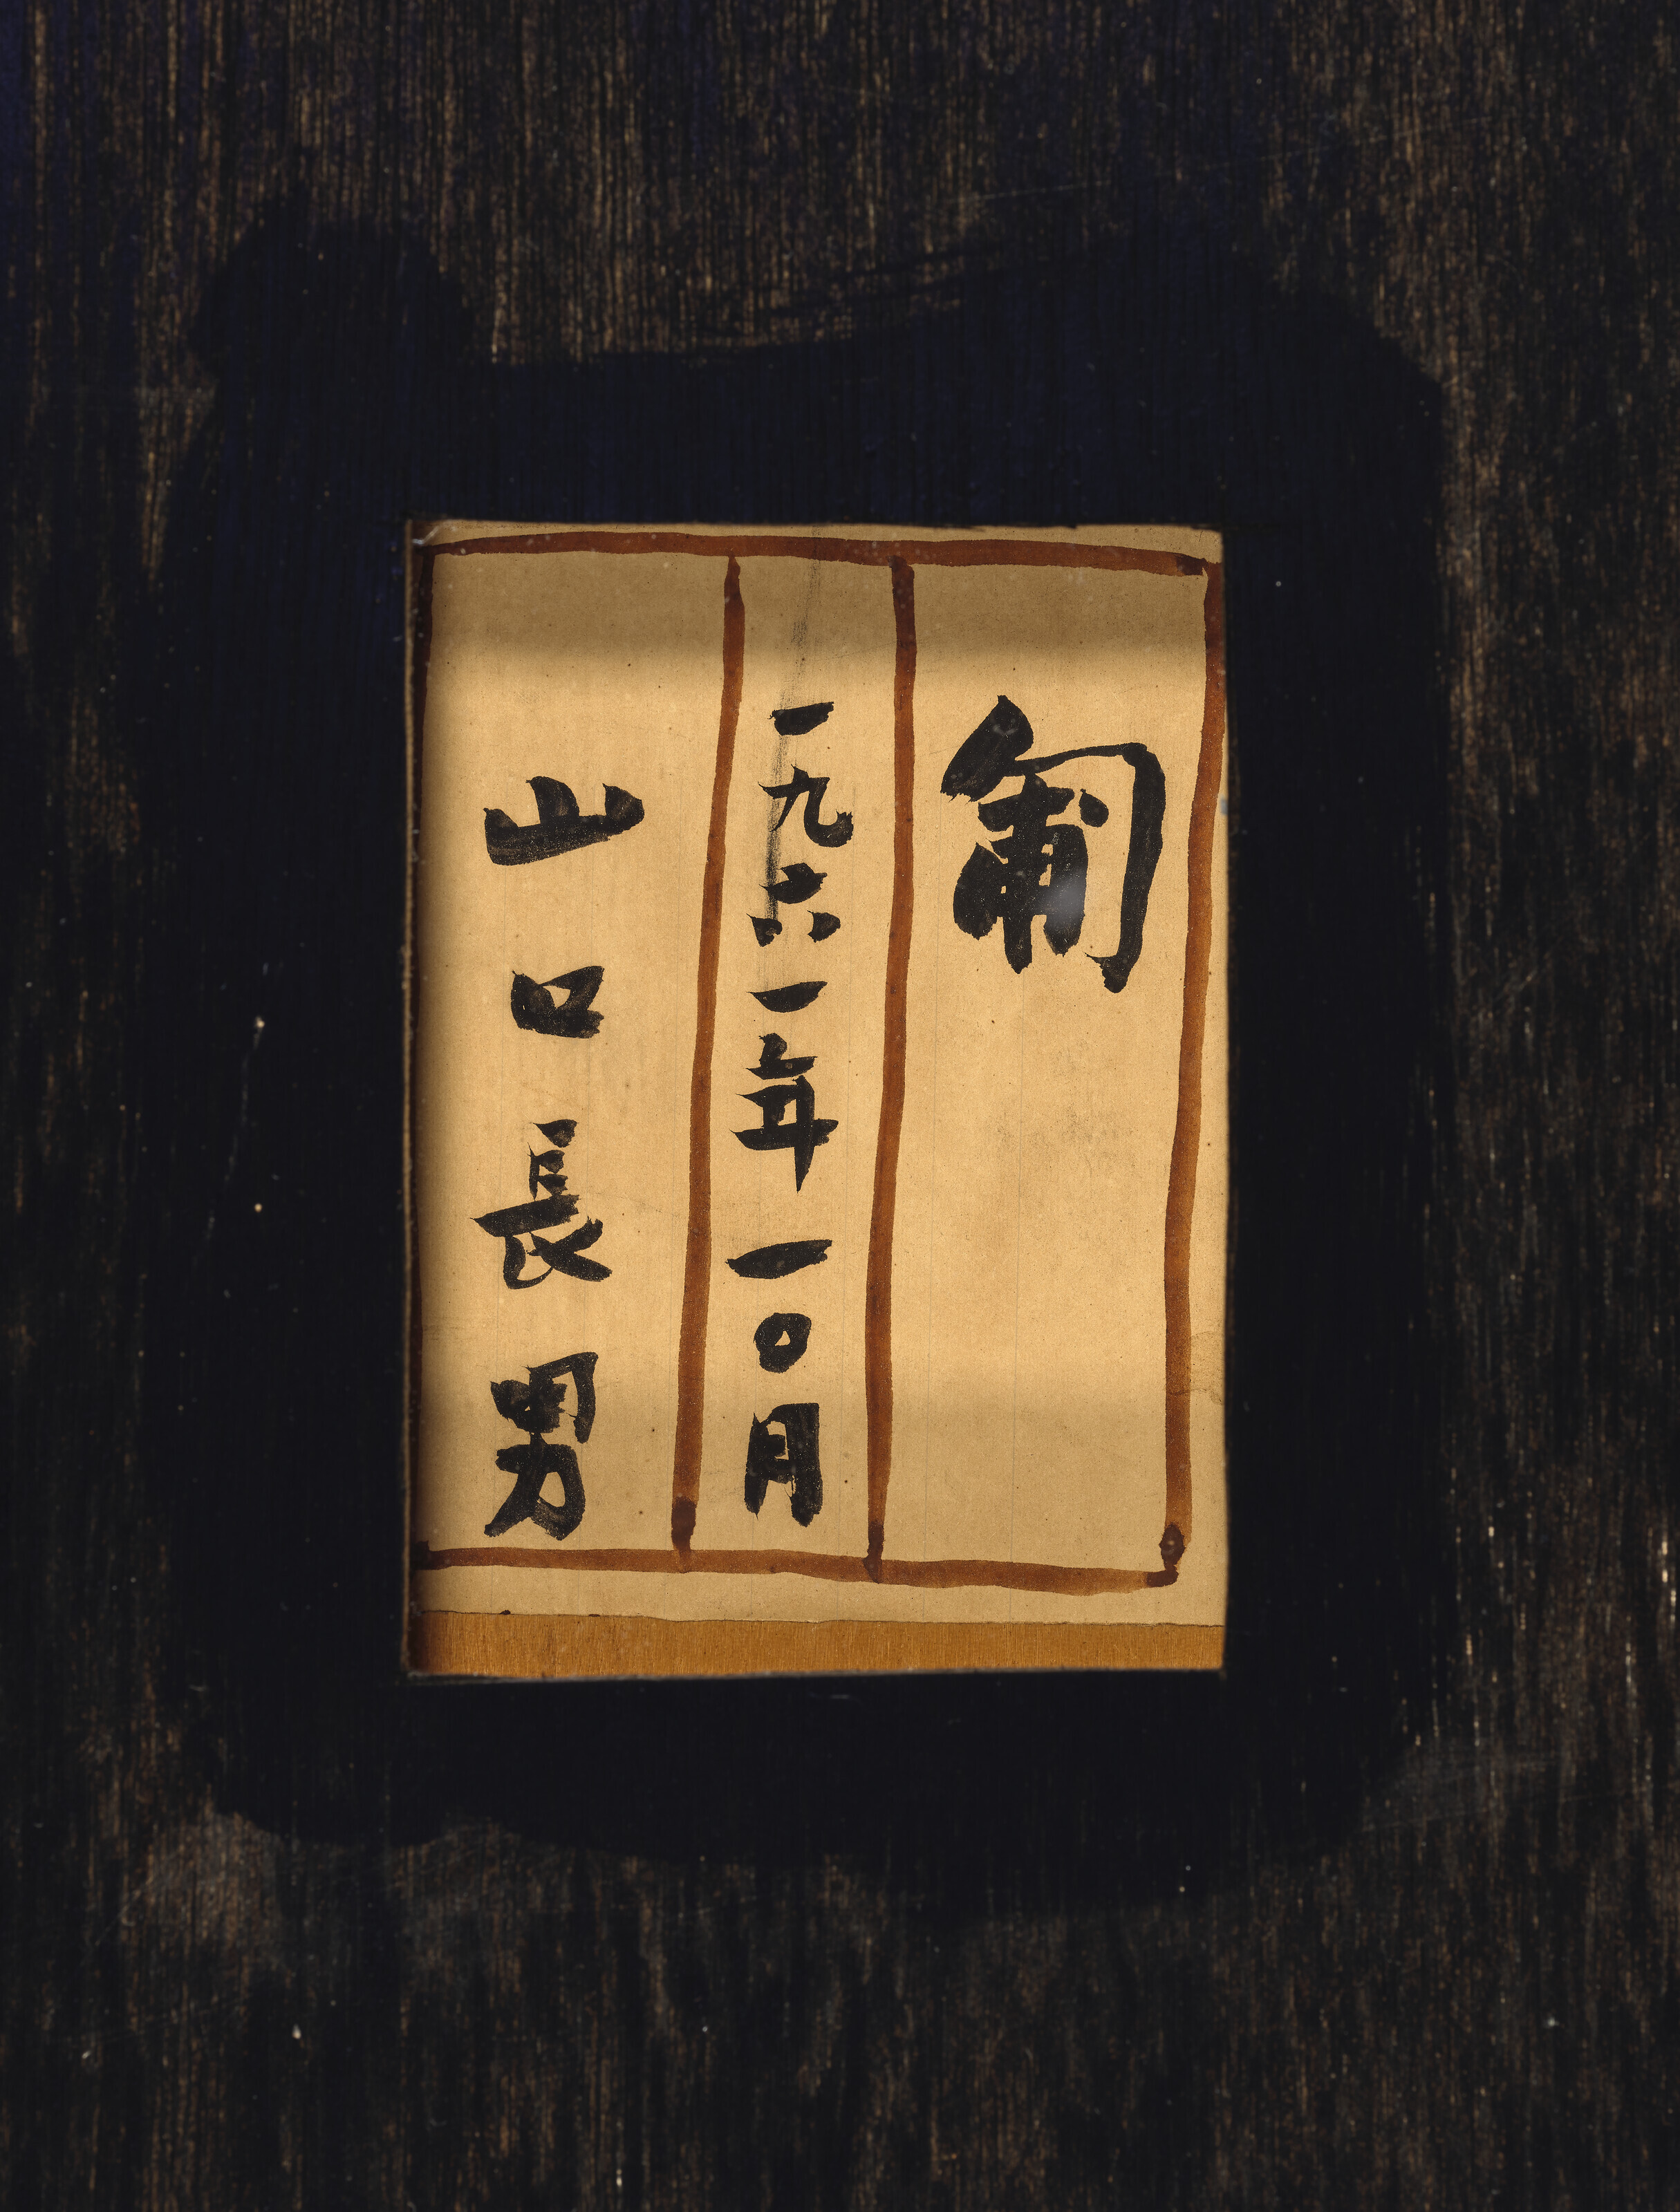 匍
一九六一年一〇月
山口長男